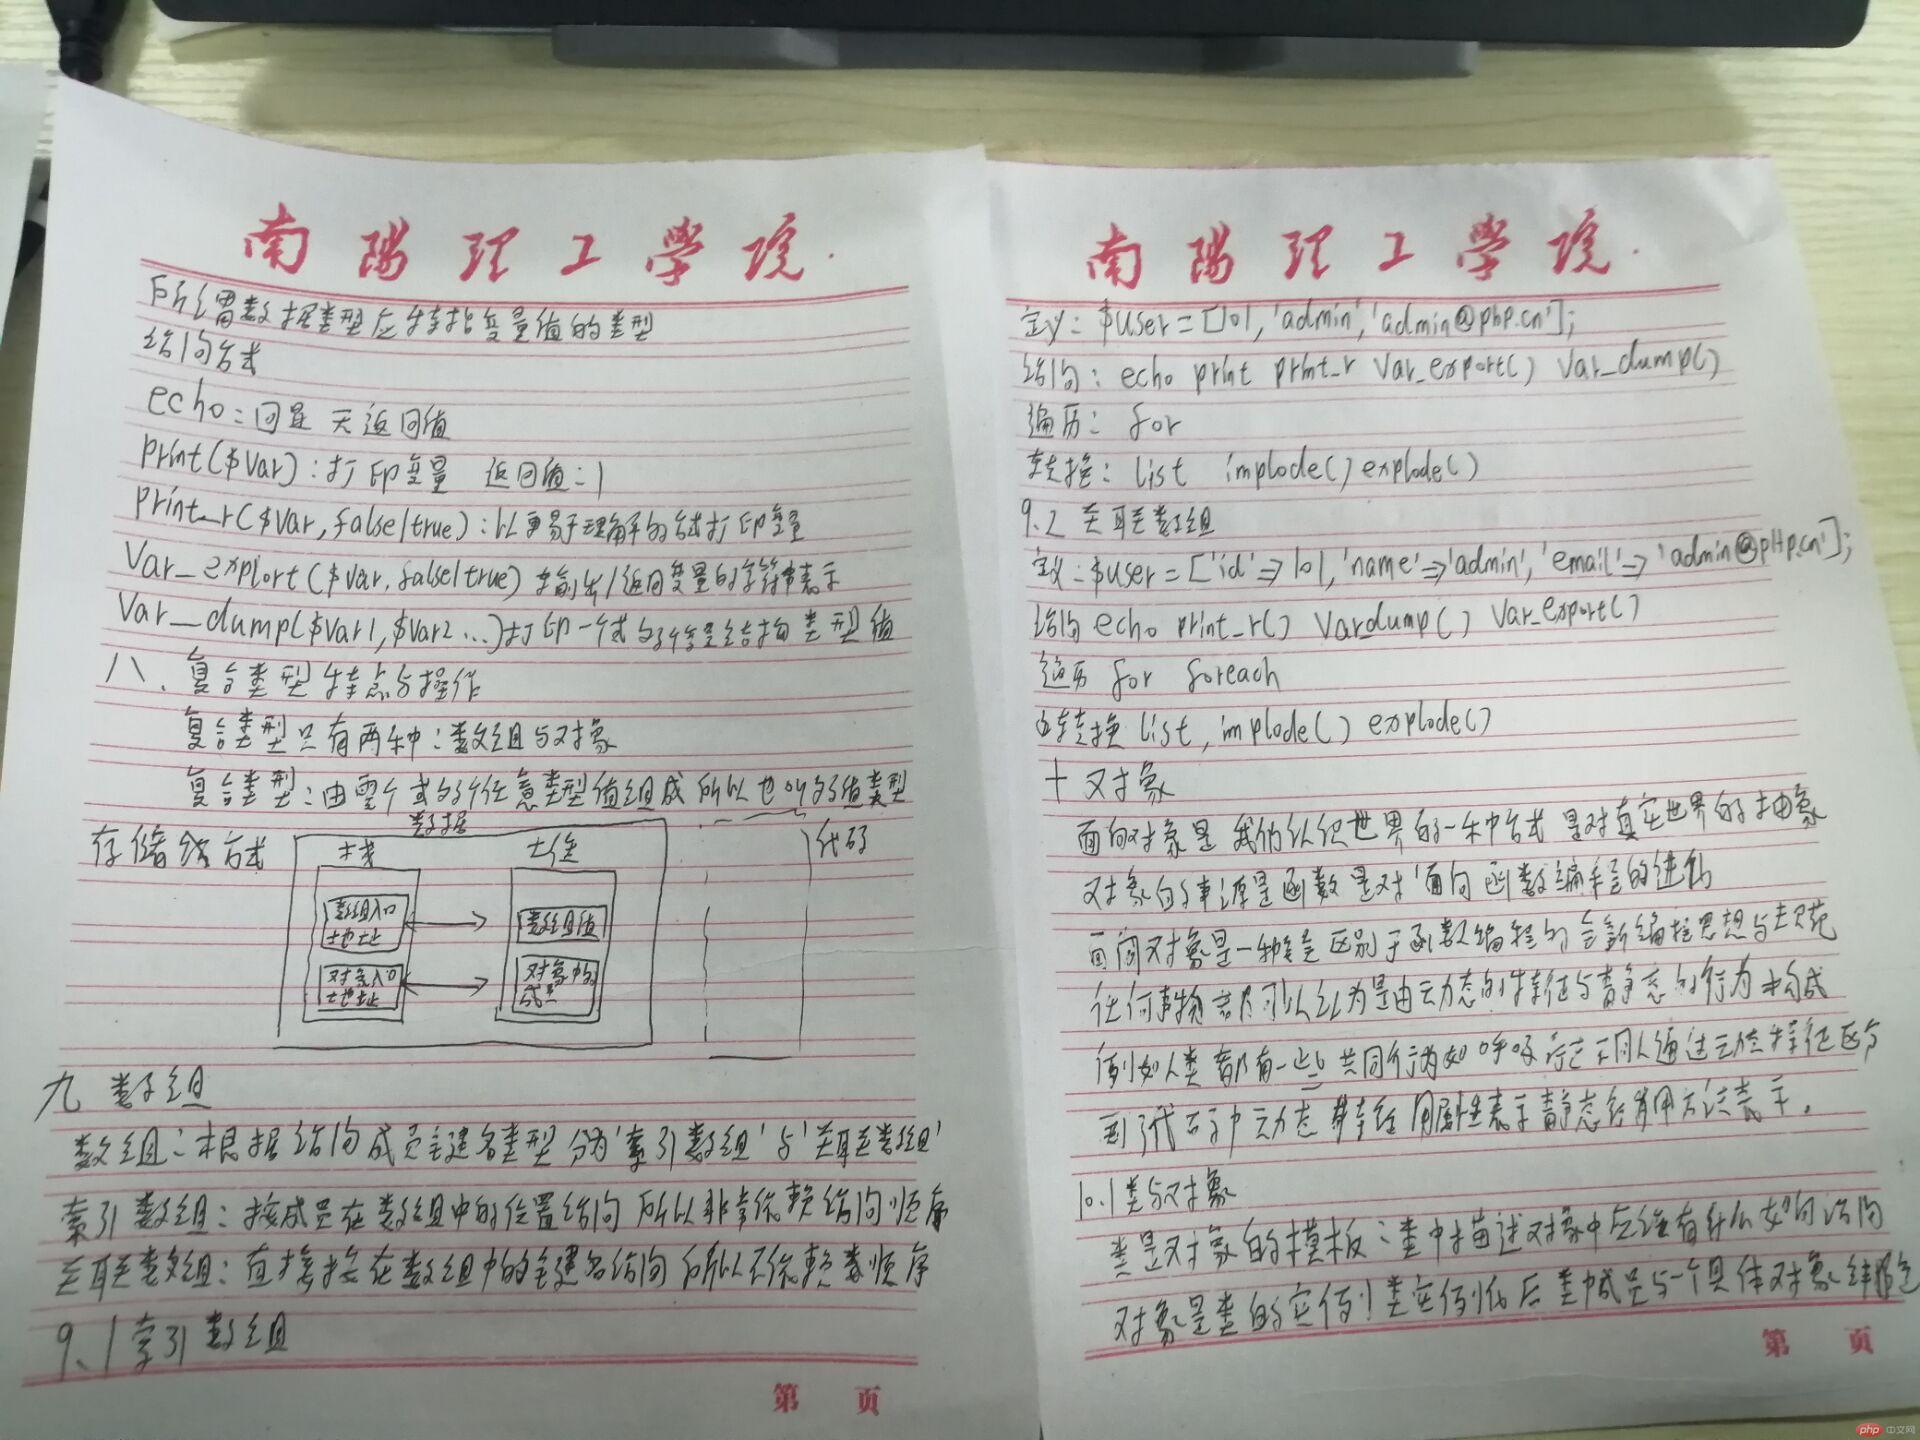 南阳理工学院
所谓数据类型应特指变量值的类型
访问方式
echo:回显 无返回值
print($var):打印变量 返回值:1
print_r($var,false/true):以更易于理解的方式打印变量
Var_explort($var,false/true) 输出/返回变量的字符串表示
Var_dump($var1,$var2...)打印一个或多个变量结构 类型 值
八、复合类型特点与操作
复合类型只有两种:数组与对象
复合类型:由零个或多个任意类型值组成 所以也叫多值类型
存储方式
数据
代码
栈
堆
数组入口
地址
数组值
对象入口
地址
对象中的
成员
九 数组
数组:根据访问成员键名类型 分为'索引数组'与'关联数组'
索引数组:按成员在数组中的位置访问 所以非常依赖访问顺序
关联数组:直接按在数组中的键名访问 所以不依赖顺序
9.1 索引数组
第 页
南阳理工学院
定义:$user=[101,'admin','admin@php.cn'];
访问:echo print print_r Var_export() Var_dump()
遍历:for
转换:list implode() explode()
9.2 关联数组
定义:$user=['id'=>101,'name'=>'admin','email'=>'admin@pHp.cn'];
访问 echo print_r() Var_dump() Var_export()
遍历 for foreach
转换 list, implode() explode()
十 对象
面向对象是我们认识世界的一种方式 是对真实世界的抽象
对象的 源是函数 是对'面向函数编程的进化
面向对象是一种 区别于函数编程的全新编程思想与规范
任何事物都可以认为是由动态的特征与静态的行为构成
例如人类都有一些共同行为如呼吸 不同人通过动态特征区分
到代码中动态特征用属性表示静态行为用方法表示.
10.1 类与对象
类是对象的模板:类中描述对象中应该有什么如何访问
对象是类的实例 类实例化后 类中成员与一个具体对象绑定
第 页
php 中文网